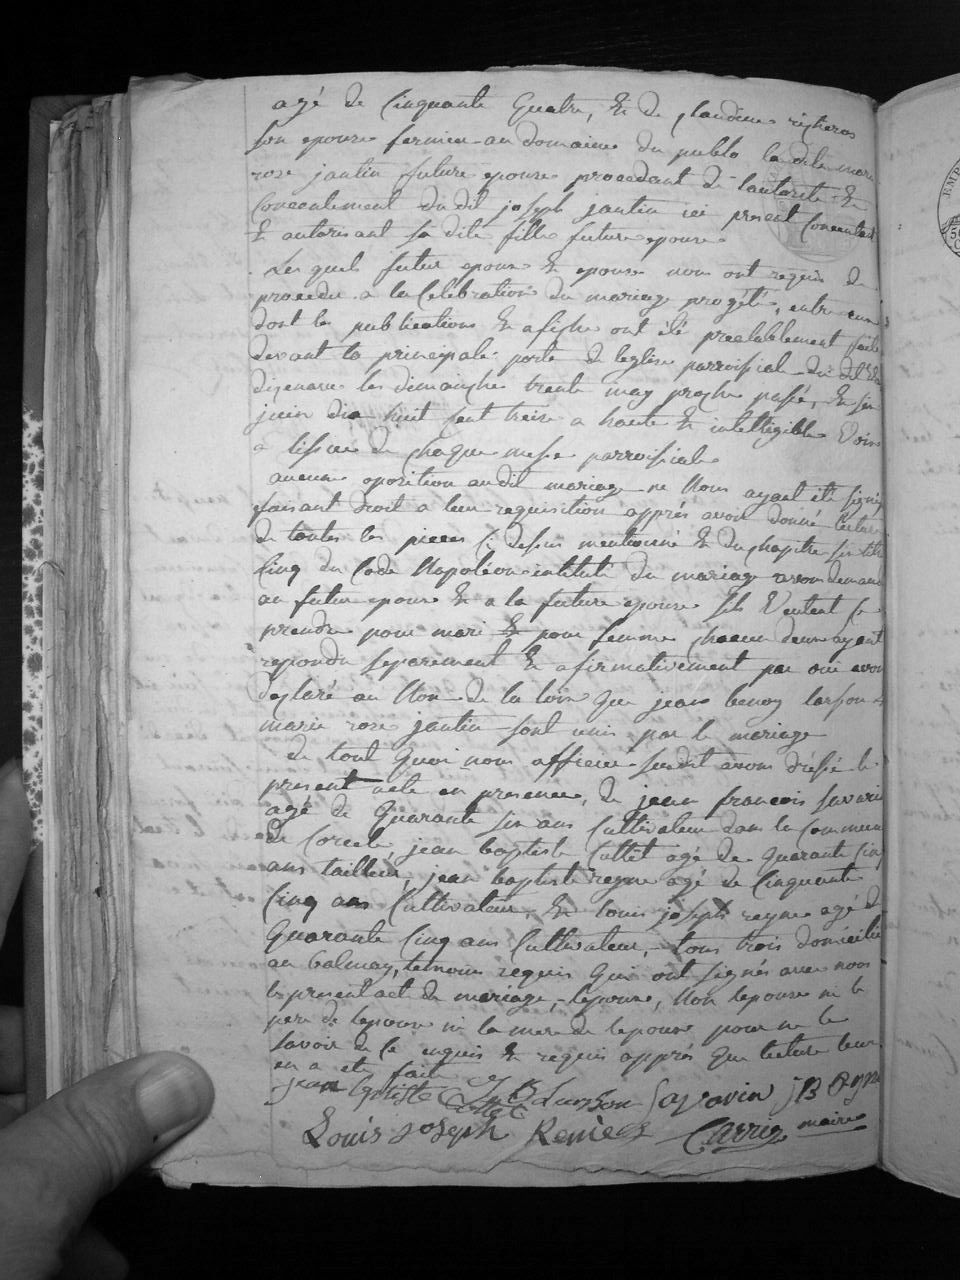 agé de Cinquante Quatre, Et de Claudine
son epouse fermier au domaine du publo la dite marie
rose jantin future epouse procedant de l'autorité Et
Consentement du dit joseph jantin ici present Consentant
Et autorisant sa dite fille future epouse
Les quels futur epoux Et epouse nous ont requis de
proceder a la Celebration du mariage progété, entre eux
dont les publications Et afiche ont été prealablement faite
devant la principale porte de leglise parroisial du dit
les dimanche trente may proche passé, Et six
juin dix huit sent treize a haute Et intelligible Voix
a lissue de chaque messe parroisial
aucune oposition audit mariage ne Nous ayant été signi
faisant droit a leur requisition apprés avoir donné lecture
de toutes les pieces Ci dessus mentionné Et du chapitre six titre
Cinq du Code Napoléon intitulé du mariage avon demandé
au futur epoux Et a la future epouse Sils Veulent se
prendre pour mari Et pour femme chacun deux ayant
repondu separement Et afirmativement par oui avon
declaré au Nom de la loix que jean benoy larson et
marie rose jantin sont unis par le mariage
de tout Quoi nous officier susdit avons dréssé le
present acte en presence, de jean francois savarin
agé de Quarante six ans Cultivateur dans la Commune
de Corcele, jean baptiste Collet agé de Quarante Cinq
ans tailleur, jean baptiste reyne agé de Cinquante
Cinq ans Cultivateur, Et Louis joseph reyne agé de
Quarante Cinq ans Cultivateur, tous trois domicilié
au balmay, temoins requis Qui ont signés avec nous
le present acte de mariage, lepoux, Non lepouse ni le
pere de lepouse ni la mere de lepoux pour ne le
savoir de Ce enquis Et requis apprés Que lecture leur
en a ety fait
jean Baptiste Collet J B Larson Savarin JB
Louis Joseph Carrig maire